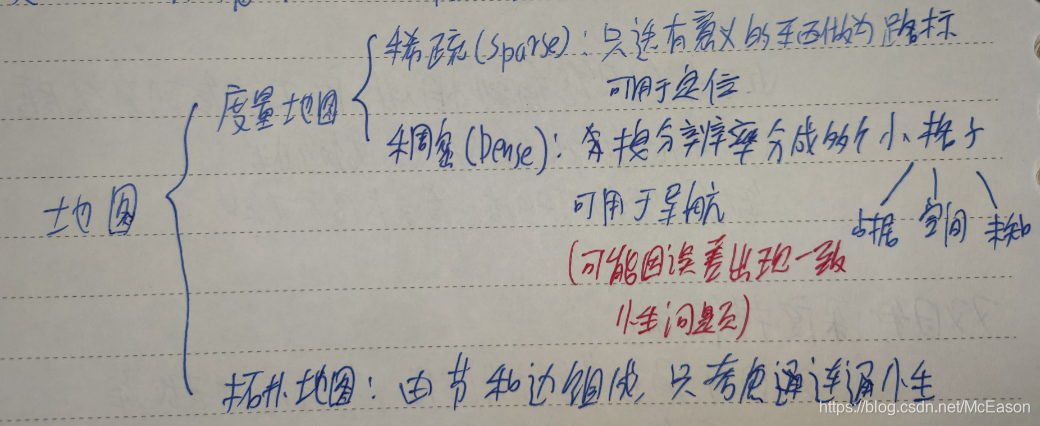 稀疏(Sparse)：只选有意义的东西做为路标
可用于定位
度量地图
稠密(Dense)：按分辨率分成的多个小格子
地图
可用于导航
占据 空间 未知
(可能因误差出现一致
性问题)
拓扑地图：由节和边组成，只考虑连通性
https://blog.csdn.net/McEason